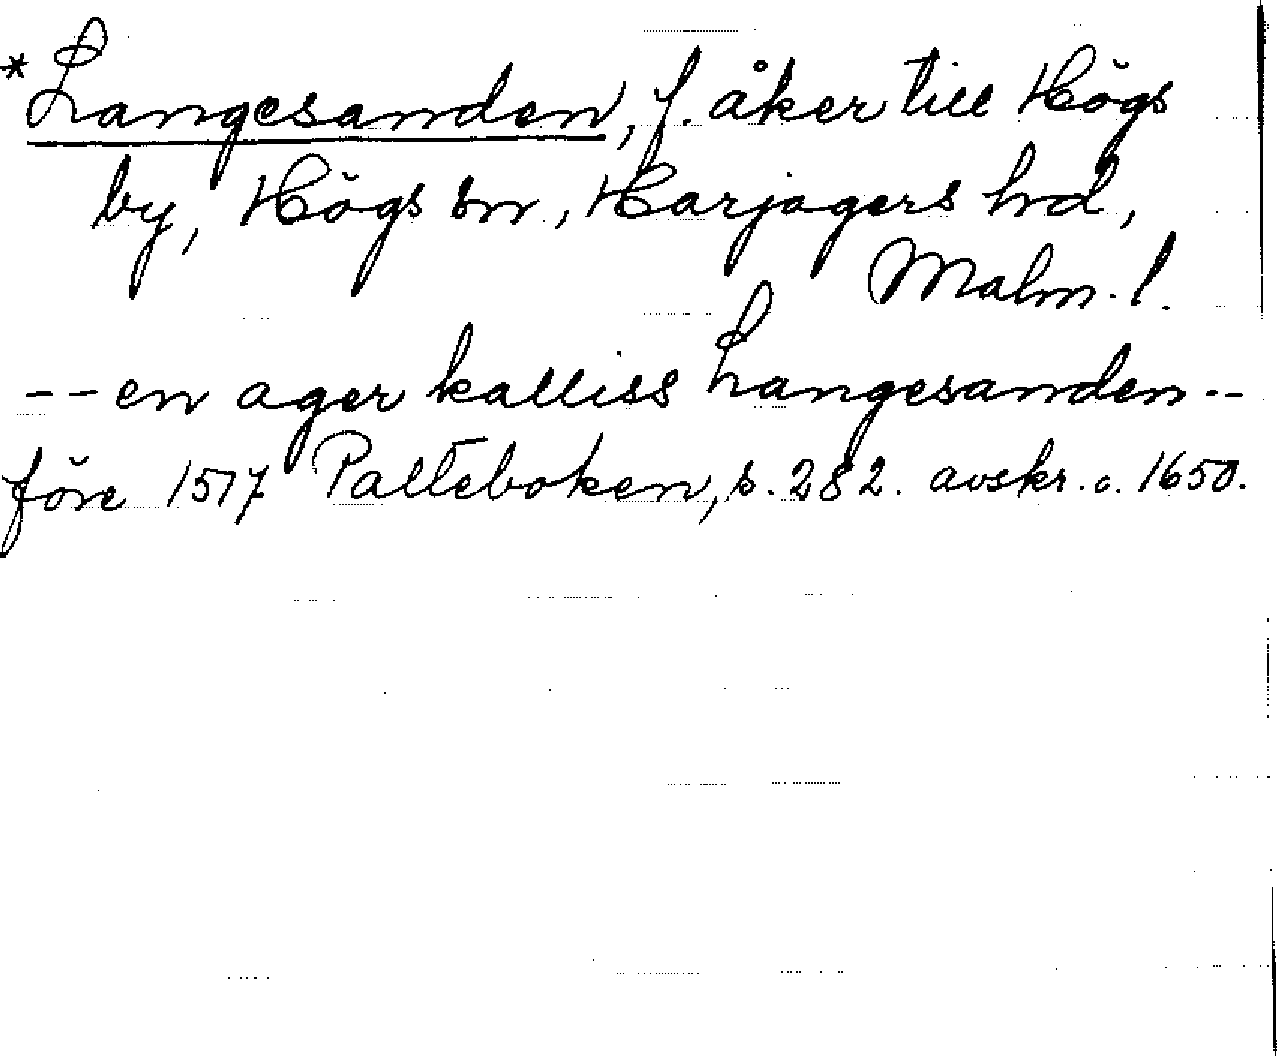 *Langesanden, f. åker till Högs
by, Högs sn., Harjagers hrd,
Malm. l.
-- en ager kalliss Langesanden --
före 1517 Palteboken, s. 282. avskr. c. 1650.